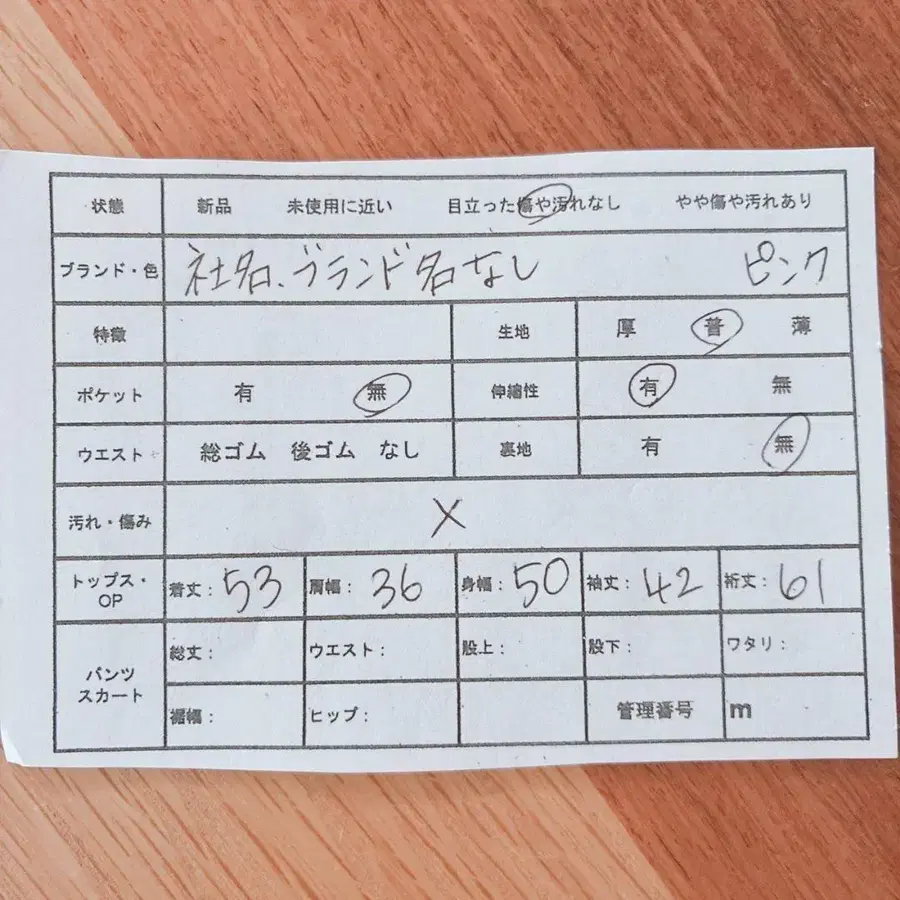 状態 新品 未使用に近い 目立った傷や汚れなし やや傷や汚れあり
ブランド・色 社名、ブランド名なし ピンク
特徴 生地 厚 普 薄
ポケット 有 無 伸縮性 有 無
ウエスト 総ゴム 後ゴム なし 裏地 有 無
汚れ・傷み X
トップス・OP 着丈：53 肩幅：36 身幅：50 袖丈：42 裄丈：61
パンツ スカート 総丈： ウエスト： 股上： 股下： ワタリ：
裾幅： ヒップ： 管理番号 m